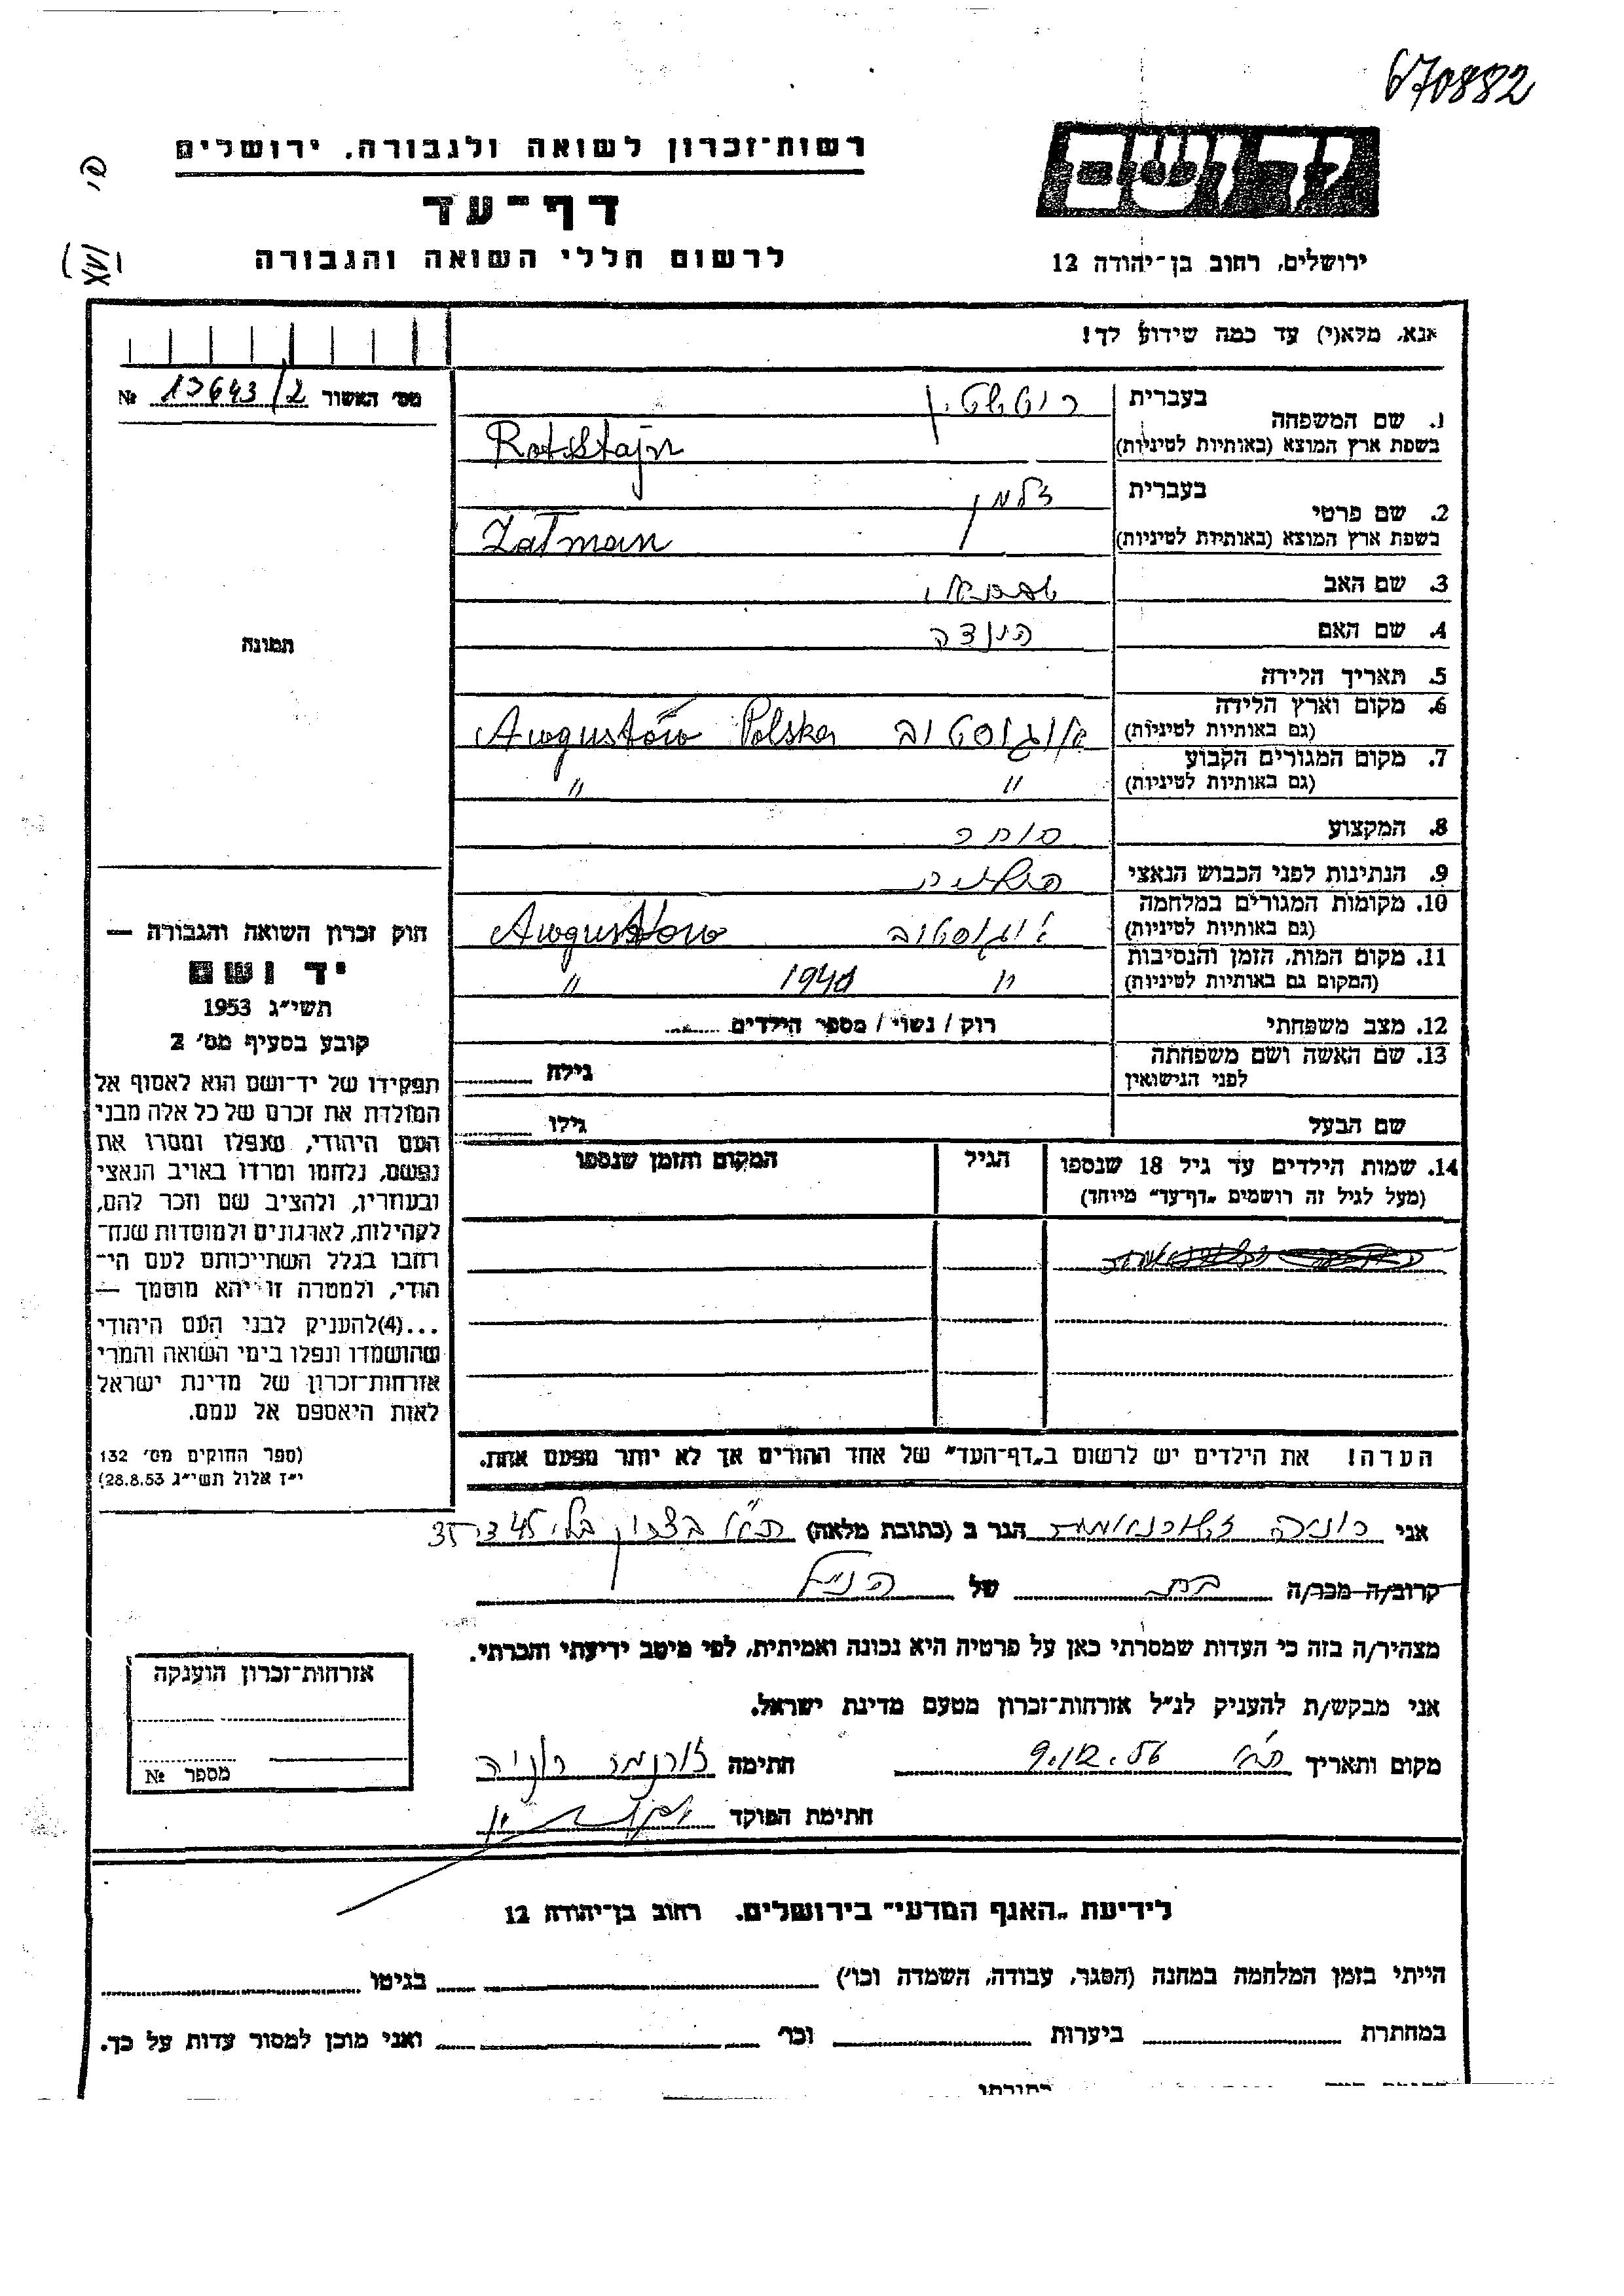 670882
רשות־זכרון לשואה ולגבורה, ירושלים
דף־עד
לרשום חללי השואה והגבורה
ירושלים, רחוב בן־יהודה 12
אנא, מלא(י) עד כמה שידוע לך!
מס׳ האשור 13643/2 №
1. שם המשפחה
בעברית רוטשטין
בשפת ארץ המוצא (באותיות לטיניות) Rotsztajn
2. שם פרטי
בעברית זלמן
בשפת ארץ המוצא (באותיות לטיניות) Zalman
3. שם האב
4. שם האם הינדה
5. תאריך הלידה
6. מקום וארץ הלידה
(גם באותיות לטיניות) אוגוסטוב Augustów Polska
7. מקום המגורים הקבוע
(גם באותיות לטיניות) " "
8. המקצוע סוחר
9. הנתינות לפני הכבוש הנאצי
10. מקומות המגורים במלחמה
(גם באותיות לטיניות) אוגוסטוב Augustów
11. מקום המות, הזמן והנסיבות
(המקום גם באותיות לטיניות) " 1941 "
12. מצב משפחתי רוק / נשוי / מספר הילדים
13. שם האשה ושם משפחתה
לפני הנישואין
גילה
שם הבעל
גילו
14. שמות הילדים עד גיל 18 שנספו
(מעל לגיל זה רושמים „דף־עד” מיוחד)
הגיל
המקום והזמן שנספו
הערה! את הילדים יש לרשום ב„דף־העד” של אחד ההורים אך לא יותר מפעם אחת.
תמונה
חוק זכרון השואה והגבורה —
יד ושם
תשי״ג 1953
קובע בסעיף מס׳ 2
תפקידו של יד־ושם הוא לאסוף אל
המולדת את זכרם של כל אלה מבני
העם היהודי, שנפלו ומסרו את
נפשם, נלחמו ומרדו באויב הנאצי
ובעוזריו, ולהציב שם וזכר להם,
לקהילות, לארגונים ולמוסדות שנח־
רחבו בגלל השתייכותם לעם הי־
הודי, ולמטרה זו יהא מוסמך —
...(4)להעניק לבני העם היהודי
שהושמדו ונפלו בימי השואה והמרי
אזרחות־זכרון של מדינת ישראל
לאות היאספם אל עמם.
(ספר החוקים מס׳ 132
י״ז אלול תשי״ג 28.8.53)
אני רוניה הגר ב (כתובת מלאה) ת״א בצרון
קרוב/ה מכר/ה בת של הנ״ל
מצהיר/ה בזה כי העדות שמסרתי כאן על פרטיה היא נכונה ואמיתית, לפי מיטב ידיעתי והכרתי.
אני מבקש/ת להעניק לנ״ל אזרחות־זכרון מטעם מדינת ישראל.
מקום ותאריך ת״א 9.12.56 חתימה רוניה
חתימת הפוקד
אזרחות־זכרון הוענקה
מספר №
לידיעת „האגף המדעי” בירושלים, רחוב בן־יהודה 12
הייתי בזמן המלחמה במחנה (הסגר, עבודה, השמדה וכו׳) בגיטו
במחתרת ביערות וכו׳ ואני מוכן למסור עדות על כך.